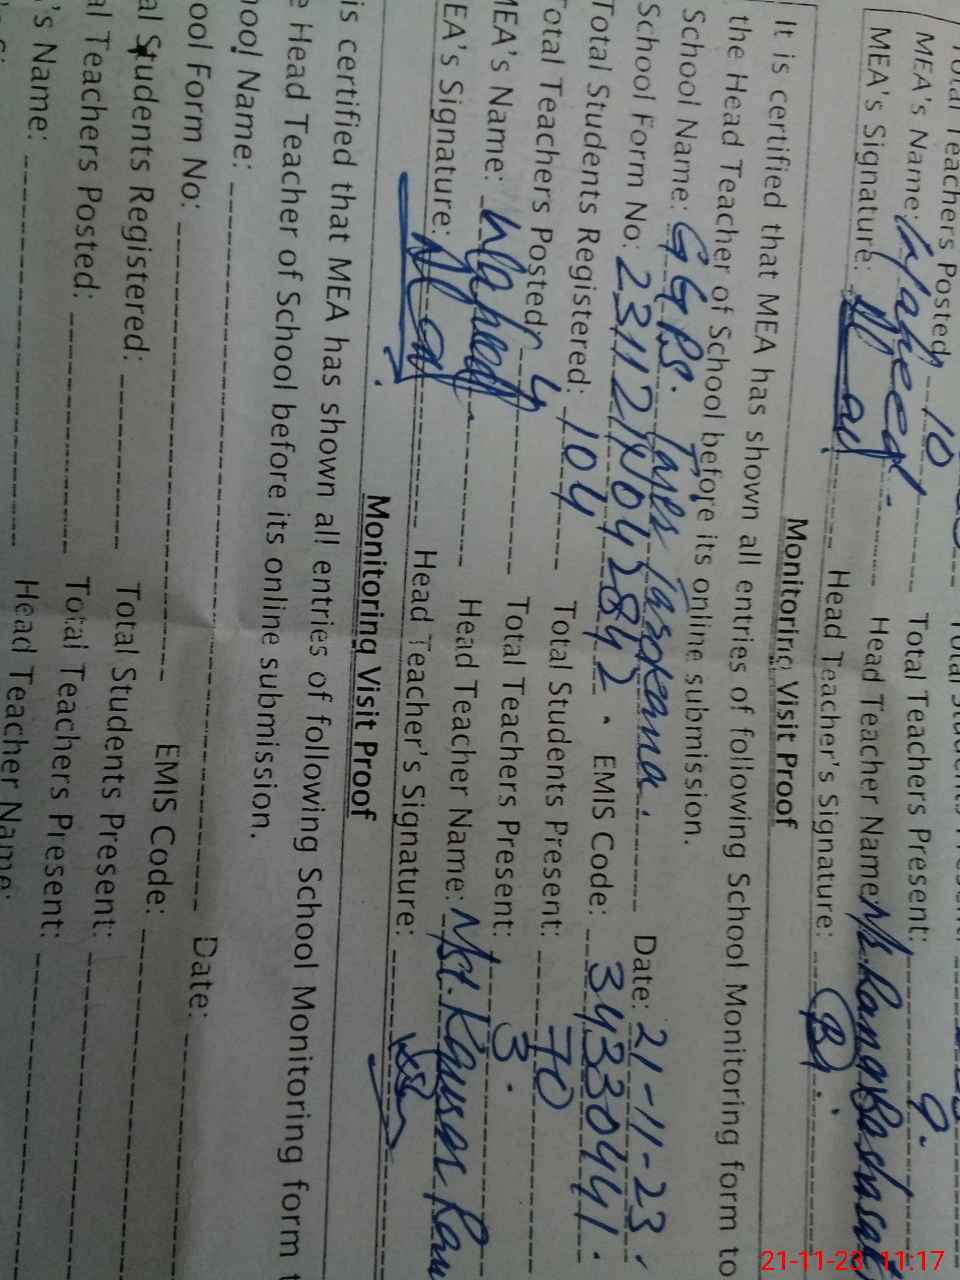 Total Teachers Posted 10 Total Teachers Present: 9.
MEA's Name: Waheed. Head Teacher Name:
MEA's Signature: Head Teacher's Signature:
Monitoring Visit Proof
It is certified that MEA has shown all entries of following School Monitoring form to
the Head Teacher of School before its online submission.
School Name: GGPS. Date: 21-11-23.
School Form No: EMIS Code: 34330441.
Total Students Registered: 104 Total Students Present: 70
Total Teachers Posted 4 Total Teachers Present: 3.
MEA's Name: Waheed Head Teacher Name: Mst. Kausar
MEA's Signature: Head Teacher's Signature:
Monitoring Visit Proof
is certified that MEA has shown all entries of following School Monitoring form t
e Head Teacher of School before its online submission.
hool Name: Date:
ool Form No: EMIS Code:
al Students Registered: Total Students Present:
al Teachers Posted: Total Teachers Present:
's Name: Head Teacher Name:
21-11-23 11:17